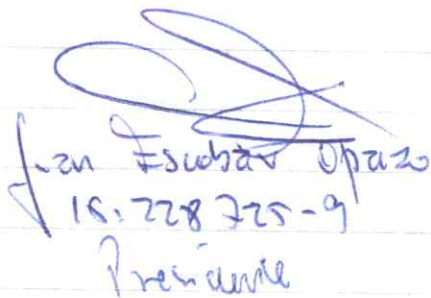 Juan Escobar Opazo
16.228725-9
Presidente